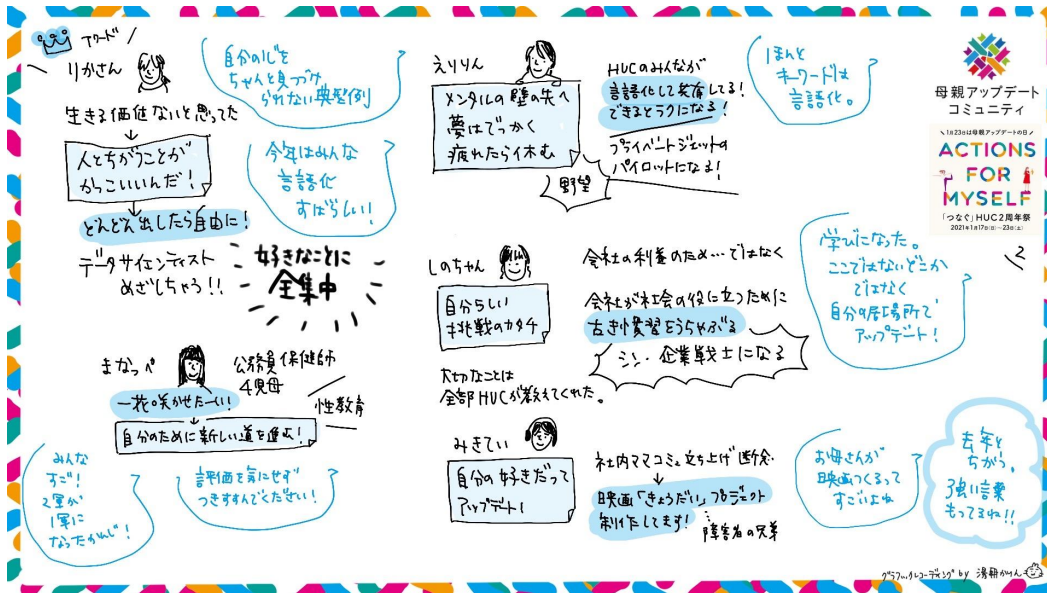 アワード
りかさん
自分の心を
ちゃんと見つけ
られない典型例
生きる価値ないと思ってた
人とちがうことが
かっこいいんだ！
今年はみんな
言語化
すばらしい！
どんどん出したら自由に！
データサイエンティスト
めざしちゃう！！
好きなことに
全集中
まなっぺ
公務員保健師
4児母
一花咲かせたーい！
性教育
自分のために新しい道を進む！
みんな
すご！
2軍が
1軍に
なったかんじ！
評価を気にせず
つきすすんでください！
えりりん
メンタルの壁の先へ
夢はでっかく
疲れたら休む
HUCのみんなが
言語化して共有してる！
できるとラクになる！
プライベートジェットの
パイロットになる！
野望
ほんと
キーワードは
言語化。
しのちゃん
自分らしい
挑戦のカタチ
会社の利益のため…ではなく
会社が社会の役に立つために
古き慣習をうちやぶる
シン・企業戦士になる
大切なことは
全部HUCが教えてくれた。
学びになった。
ここではないどこか
ではなく
自分の居場所で
アップデート！
みきてぃ
自分の好きだって
アップデート！
社内ママコミュ立ち上げ断念
映画「きょうだい」プロジェクト
制作してます！
障害者の兄弟
お母さんが
映画つくるって
すごいよね
去年と
ちがう。
強い言葉
もってるね！！
母親アップデート
コミュニティ
1月23日は母親アップデートの日
ACTIONS
FOR
MYSELF
「つなぐ」HUC2周年祭
2021年1月17日(日)〜23日(土)
2
グラフィックレコーディング by 湯朝かりん